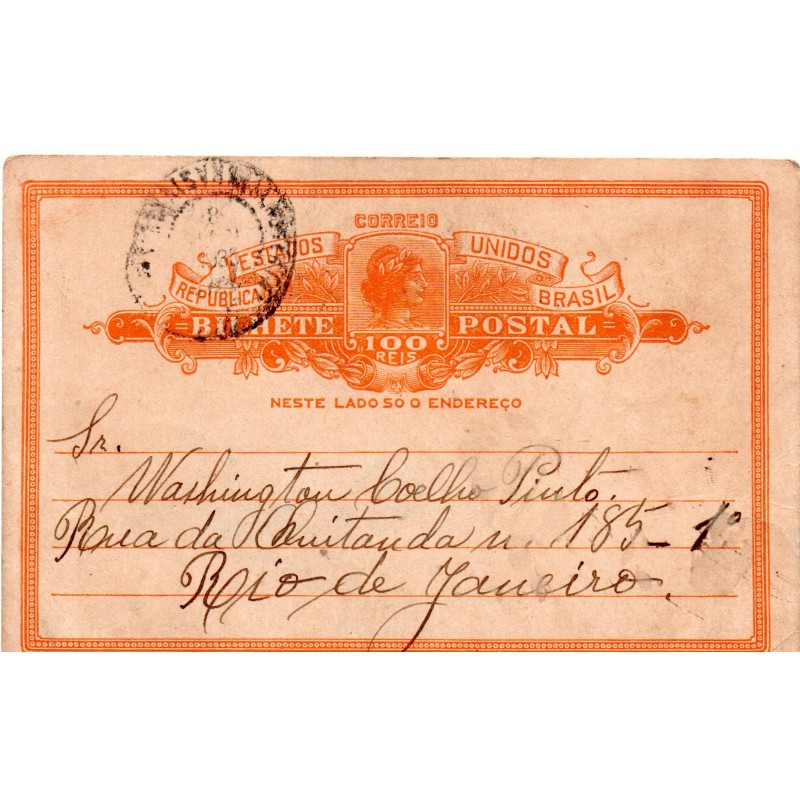 CORREIO
ESTADOS UNIDOS
REPUBLICA BRASIL
BILHETE POSTAL
100
REIS
NESTE LADO SÓ O ENDEREÇO
Sr.
Washington Coelho Pinto.
Rua da Quitanda n. 185 - 1º
Rio de Janeiro.